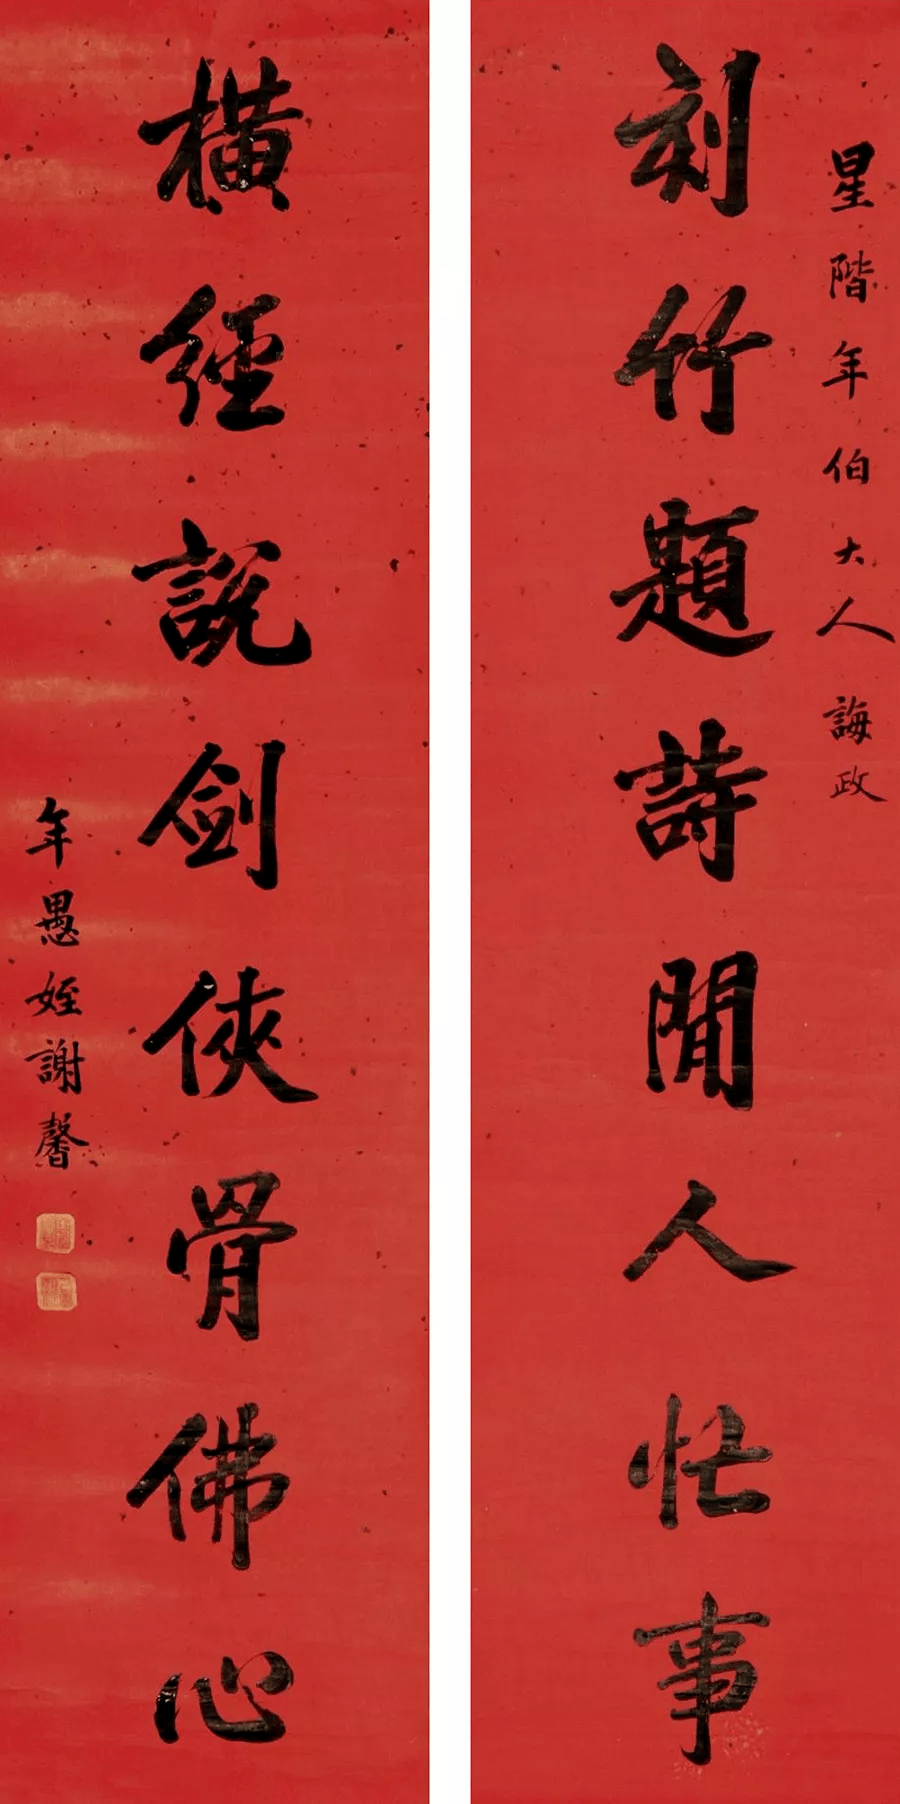 星階年伯大人誨政
刻竹題詩閒人忙事
橫經說劍俠骨佛心
年愚姪謝馨